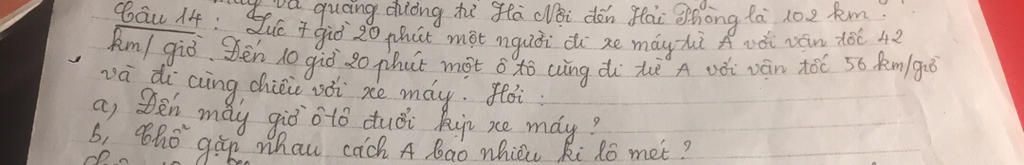 máy và quãng đường từ Hà Nội đến Hải Phòng là 102 km.
Câu 14: Lúc 7 giờ 20 phút một người đi xe máy từ A với vận tốc 42
km/giờ. Đến 10 giờ 20 phút một ô tô cũng đi từ A với vận tốc 56 km/giờ
và đi cùng chiều với xe máy. Hỏi:
a, Đến mấy giờ ô tô đuổi kịp xe máy?
b, Chỗ gặp nhau cách A bao nhiêu ki lô mét?